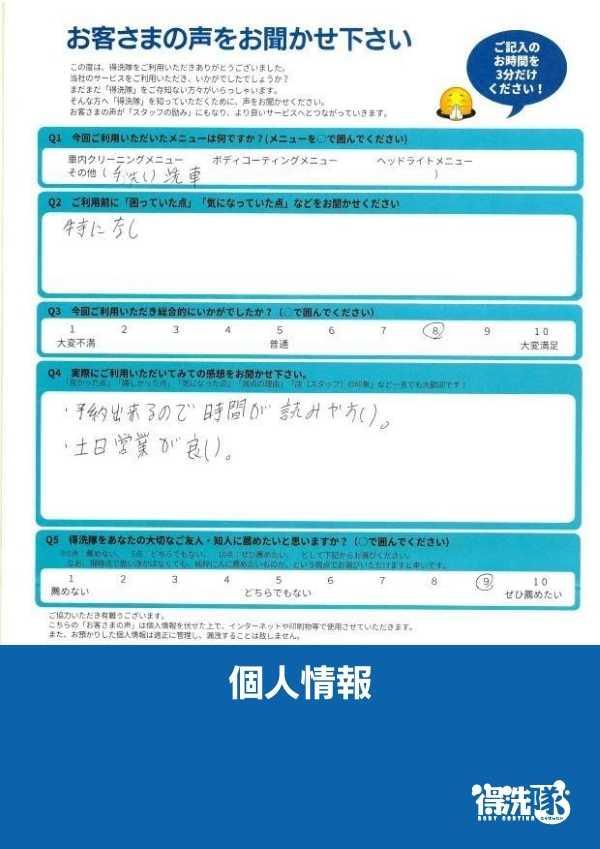 お客さまの声をお聞かせ下さい
ご記入の
お時間を
3分だけ
ください！
この度は、得洗隊をご利用いただきありがとうございました。
当社のサービスをご利用いただき、いかがでしたでしょうか？
まだまだ「得洗隊」をご存知ない方々がいらっしゃいます。
そんな方へ「得洗隊」を知っていただくために、声をお聞かせください。
お客さまの声が「スタッフの励み」にもなり、より良いサービスへとつながっていきます。
Q1 今回ご利用いただいたメニューは何ですか？(メニューを○で囲んでください)
車内クリーニングメニュー ボディコーティングメニュー ヘッドライトメニュー
その他（ 手洗い洗車 ）
Q2 ご利用前に「困っていた点」「気になっていた点」などをお聞かせください
特になし
Q3 今回ご利用いただき総合的にいかがでしたか？（○で囲んでください）
1 2 3 4 5 6 7 8 9 10
大変不満 普通 大変満足
Q4 実際にご利用いただいてみての感想をお聞かせ下さい。
「良かった点」「嬉しかった点」「気になった点」「満点の理由」「店（スタッフ）の印象」など一言でも大歓迎です！
・予約出来るので時間が読みやすい。
・土日営業が良い。
Q5 得洗隊をあなたの大切なご友人・知人に薦めたいと思いますか？（○で囲んでください）
※0点：薦めない、 5点：どちらでもない、 10点：ぜひ薦めたい、 として下記からお選びください。
1 2 3 4 5 6 7 8 9 10
薦めない どちらでもない ぜひ薦めたい
ご協力いただき有難うございます。
こちらの「お客さまの声」は個人情報を伏せた上で、インターネットや印刷物等で使用させていただきます。
また、お預かりした個人情報は適正に管理し、漏洩することは致しません。
個人情報
得洗隊
BODY COATING